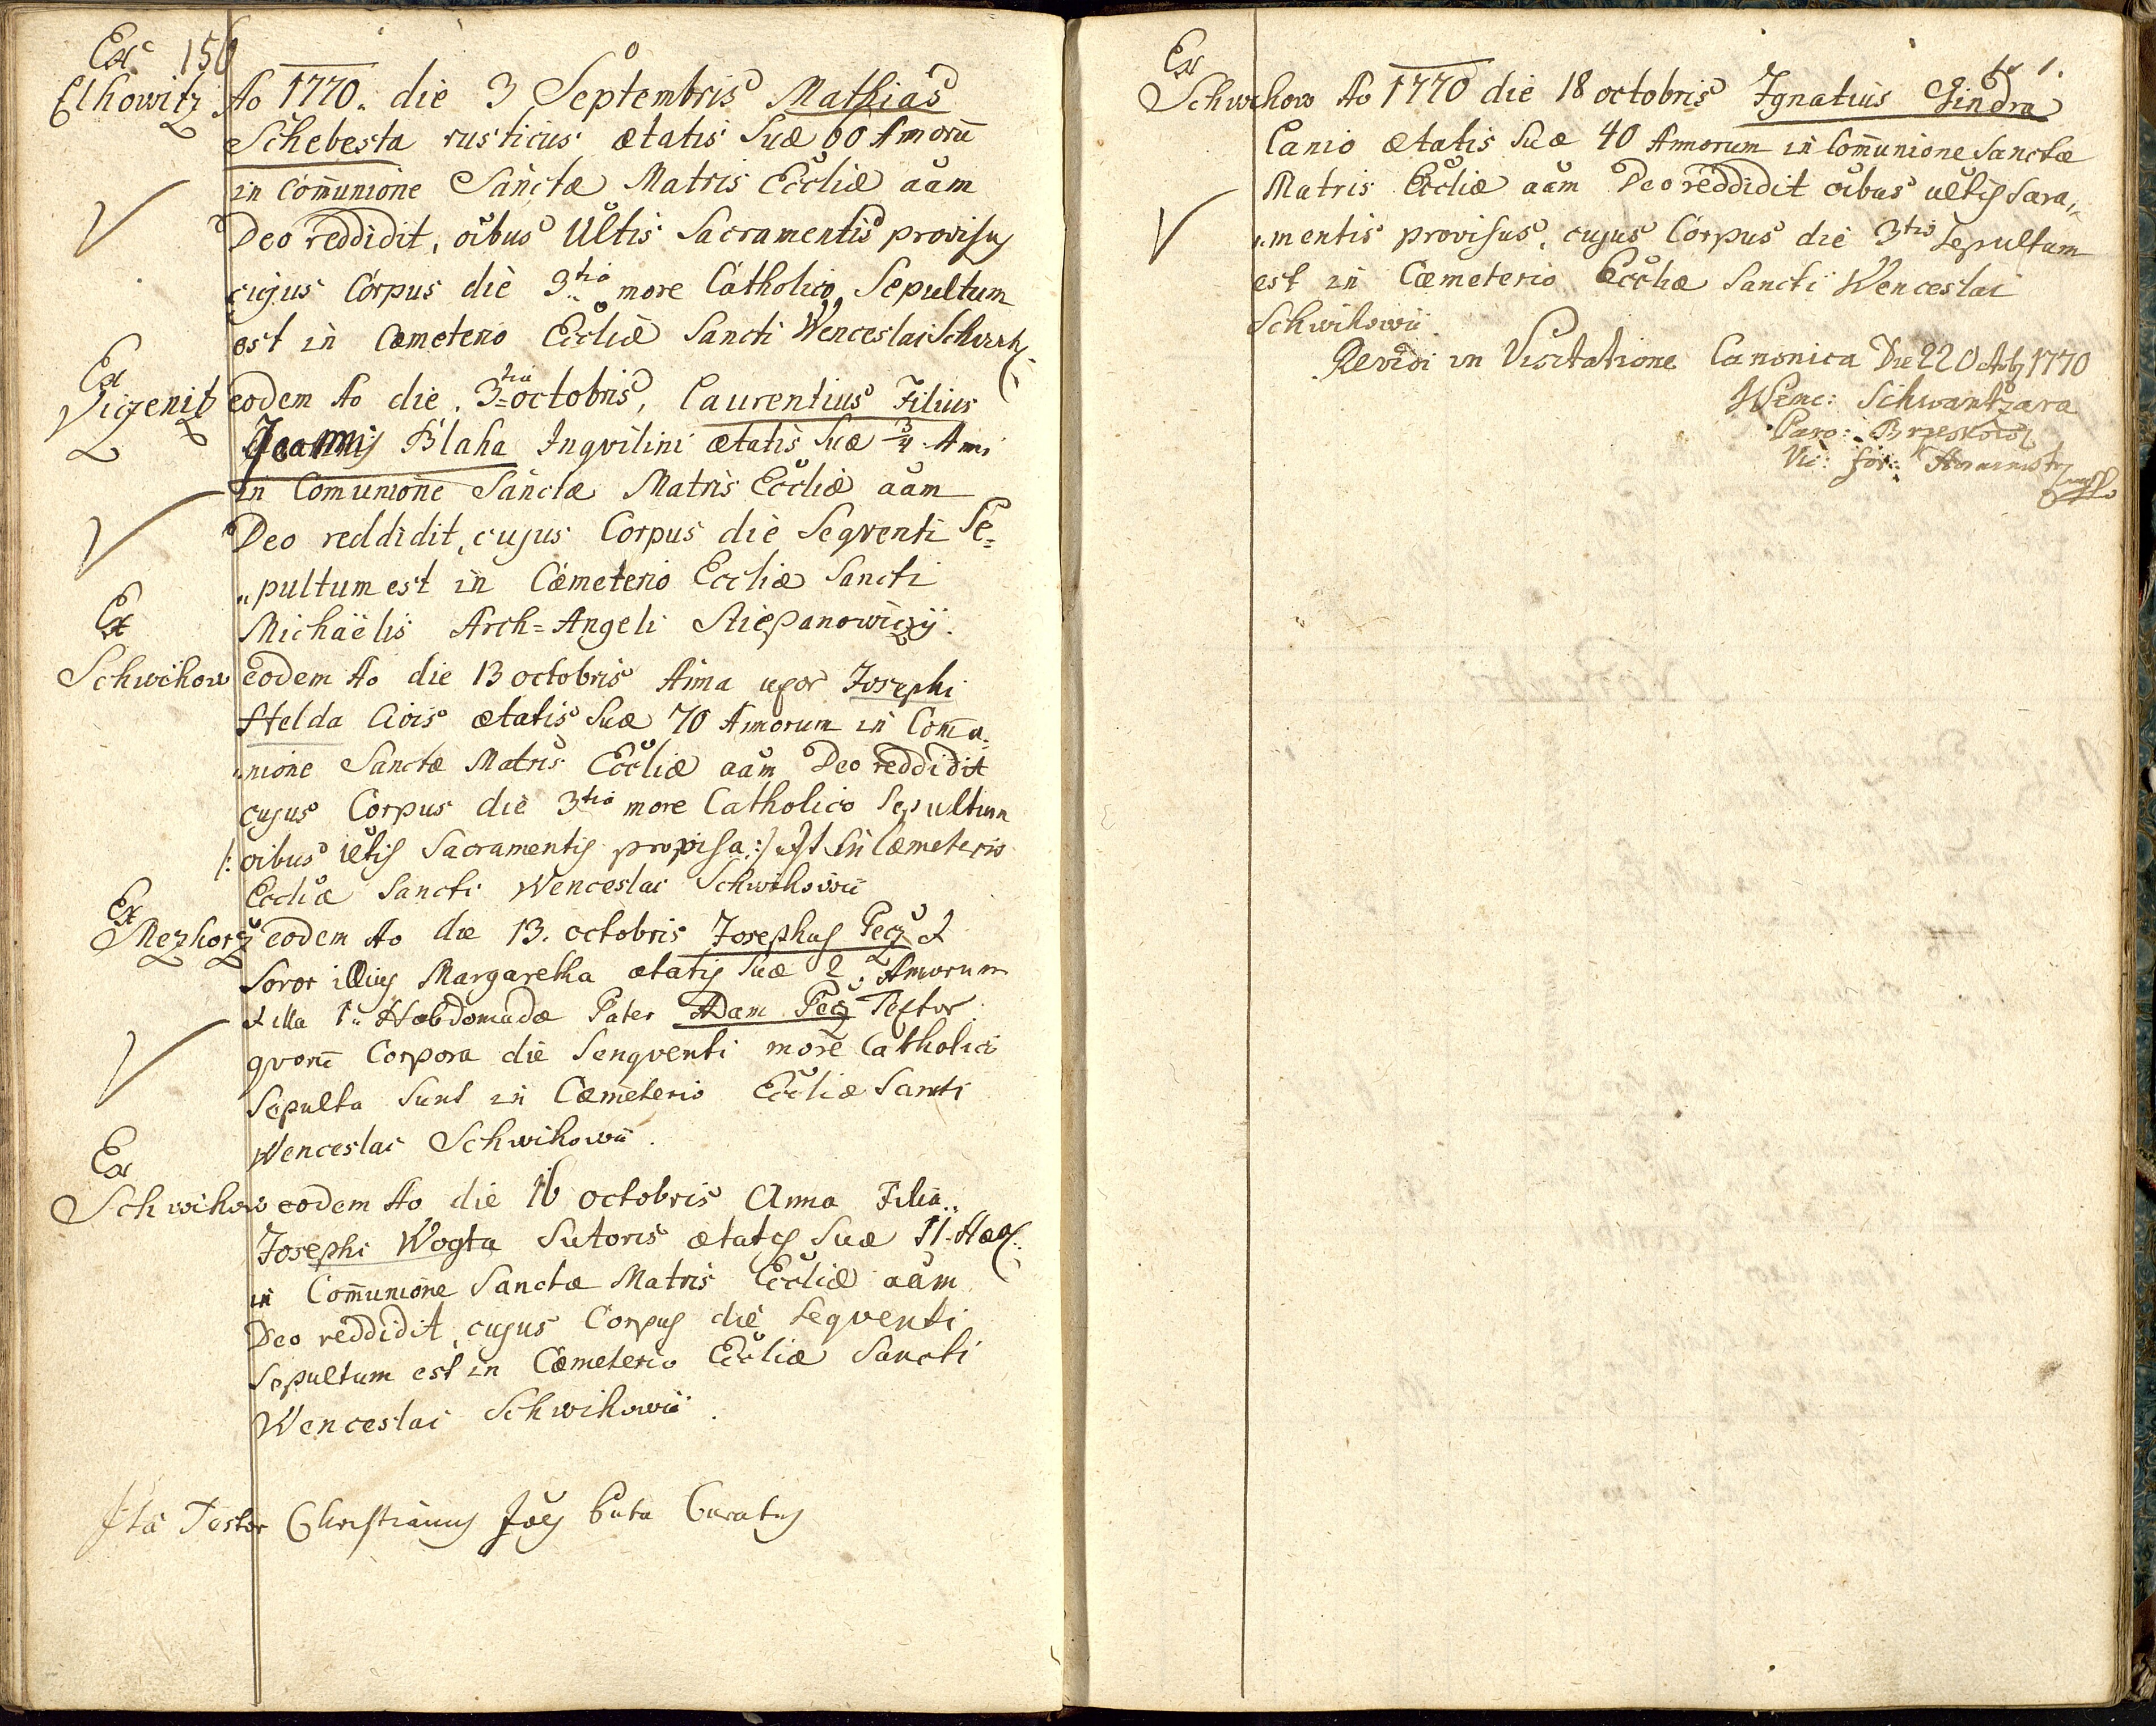 Ex 150
Elhowitz Ao 1770. die 3 Septembris Mathias
Schebesta rusticus ætatis Suæ 60 Annorū
in Com̄unione Sanctæ Matris Eccliæ aam
Deo reddidit, oibus Ultis Sacramentis provisus
cujus Corpus die 3tia more Catholico Sepultum
est in Cœmeterio Eccliæ Sancti Wenceslai Schwih.
Ex
Viczenitz eodem Ao die 3tia octobris, Laurentius Filius
Joannis Blaha Inqvilini ætatis Suæ 3/4 Anni
in Comunione Sanctæ Matris Eccliæ aam
Deo reddidit, cujus Corpus die Seqventi Se=
"pultum est in Cœmeterio Eccliæ Sancti
Michaëlis Arch=Angeli Stiepanowiczij.
Ex
Schwihow eodem Ao die 13 octobris Anna uxor Josephi
Helda Civis ætatis Suæ 70 Annorum in Com̄u=
"nione Sanctæ Matris Eccliæ aam Deo reddidit
cujus Corpus die 3tia more Catholico Sepultum
/: oibus ultis Sacramentis provisa :/ est in Cœmeterio
Eccliæ Sancti Wenceslai Schwihowii
Ex
Mezhorz eodem Ao die 13. octobris Josephus Pecz &
Soror illius Margaretha ætatis Suæ 2. Annorum
& illa 1" Hebdomadæ Pater Adam Pecz Textor
qvorū Corpora die Senqventi more Catholico
Sepulta Sunt in Cœmeterio Eccliæ Sancti
Wenceslai Schwihowii.
Ex
Schwihow eodem Ao die 16 octobris Anna Filia
Josephi Wogta Sutoris ætatis Suæ 11
in Com̄unione Sanctæ Matris Eccliæ aam
Deo reddidit cujus Corpus die Seqventi
Sepultum est in Cœmeterio Eccliæ Sancti
Wenceslai Schwihowii.
Ita Testor Christianus Curatus
Ex
Schwihow Ao 1770 die 18 octobris Ignatius Jindra
Lanio ætatis Suæ 40 Annorum in Com̄unione Sanctæ
Matris Eccliæ aam Deo reddidit oibus ultis Sacra"
"mentis provisus, cujus Corpus die 3tia Sepultum
est in Cœmeterio Eccliæ Sancti Wenceslai
Schwihowii.
Revidi in Visitatione Canonica Die 22 Octob 1770
Wenc: Schwantzara
Paro:
Vic: for: